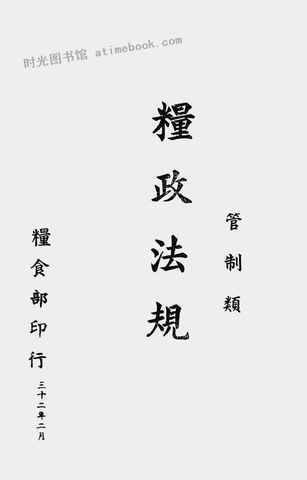 时光图书馆 atimebook.com
管制類
糧政法規
糧食部印行
三十二年二月